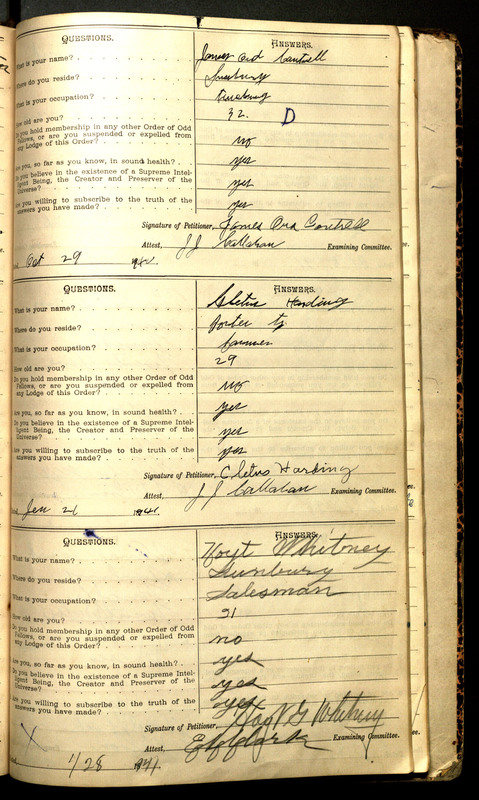 QUESTIONS. ANSWERS.
What is your name? James Ord Cantrell
Where do you reside? Sunbury
What is your occupation?
How old are you? 32. D
Do you hold membership in any other Order of Odd
Fellows, or are you suspended or expelled from
any Lodge of this Order? no
Are you, so far as you know, in sound health? yes
Do you believe in the existence of a Supreme Intel-
ligent Being, the Creator and Preserver of the
Universe? yes
Are you willing to subscribe to the truth of the
answers you have made? yes
Signature of Petitioner, James Ord Cantrell
Attest, J J Callahan Examining Committee.
Oct 29 194
QUESTIONS. ANSWERS.
What is your name? Cletus Harding
Where do you reside? Porter tp
What is your occupation? farmer
How old are you? 29
Do you hold membership in any other Order of Odd
Fellows, or are you suspended or expelled from
any Lodge of this Order? no
Are you, so far as you know, in sound health? yes
Do you believe in the existence of a Supreme Intel-
ligent Being, the Creator and Preserver of the
Universe? yes
Are you willing to subscribe to the truth of the
answers you have made? yes
Signature of Petitioner, Cletus Harding
Attest, J J Callahan Examining Committee.
Jan 21 1941
QUESTIONS. ANSWERS.
What is your name? Hoyt Whitney
Where do you reside? Sunbury
What is your occupation? Salesman
How old are you? 31
Do you hold membership in any other Order of Odd
Fellows, or are you suspended or expelled from
any Lodge of this Order? no
Are you, so far as you know, in sound health? yes
Do you believe in the existence of a Supreme Intel-
ligent Being, the Creator and Preserver of the
Universe? yes
Are you willing to subscribe to the truth of the
answers you have made? yes
Signature of Petitioner, Hoyt G Whitney
Attest, Clark Examining Committee.
X 1/28 1941.